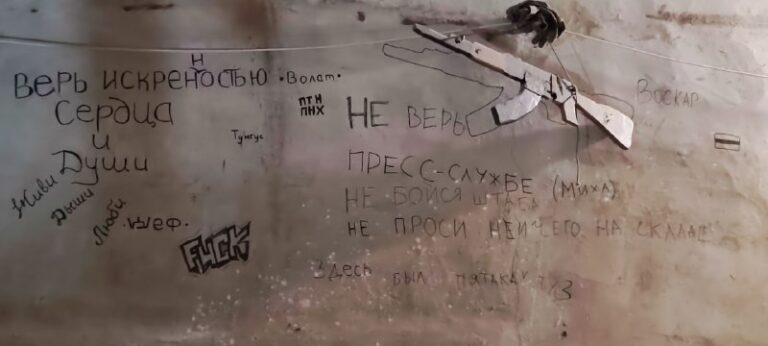 Верь искреностью
н
Сердца
и
Души
•Волат•
ПТН
ПНХ
Тунгус
Живи
Дыши
Люби
•Шеф•
FUCK
НЕ ВЕРЬ
ПРЕСС-СЛУЖБЕ
НЕ БОЙСЯ ШТАБА (МИХА)
НЕ ПРОСИ НЕИЧЕГО НА СКЛАДЕ
Здесь был
Воскар